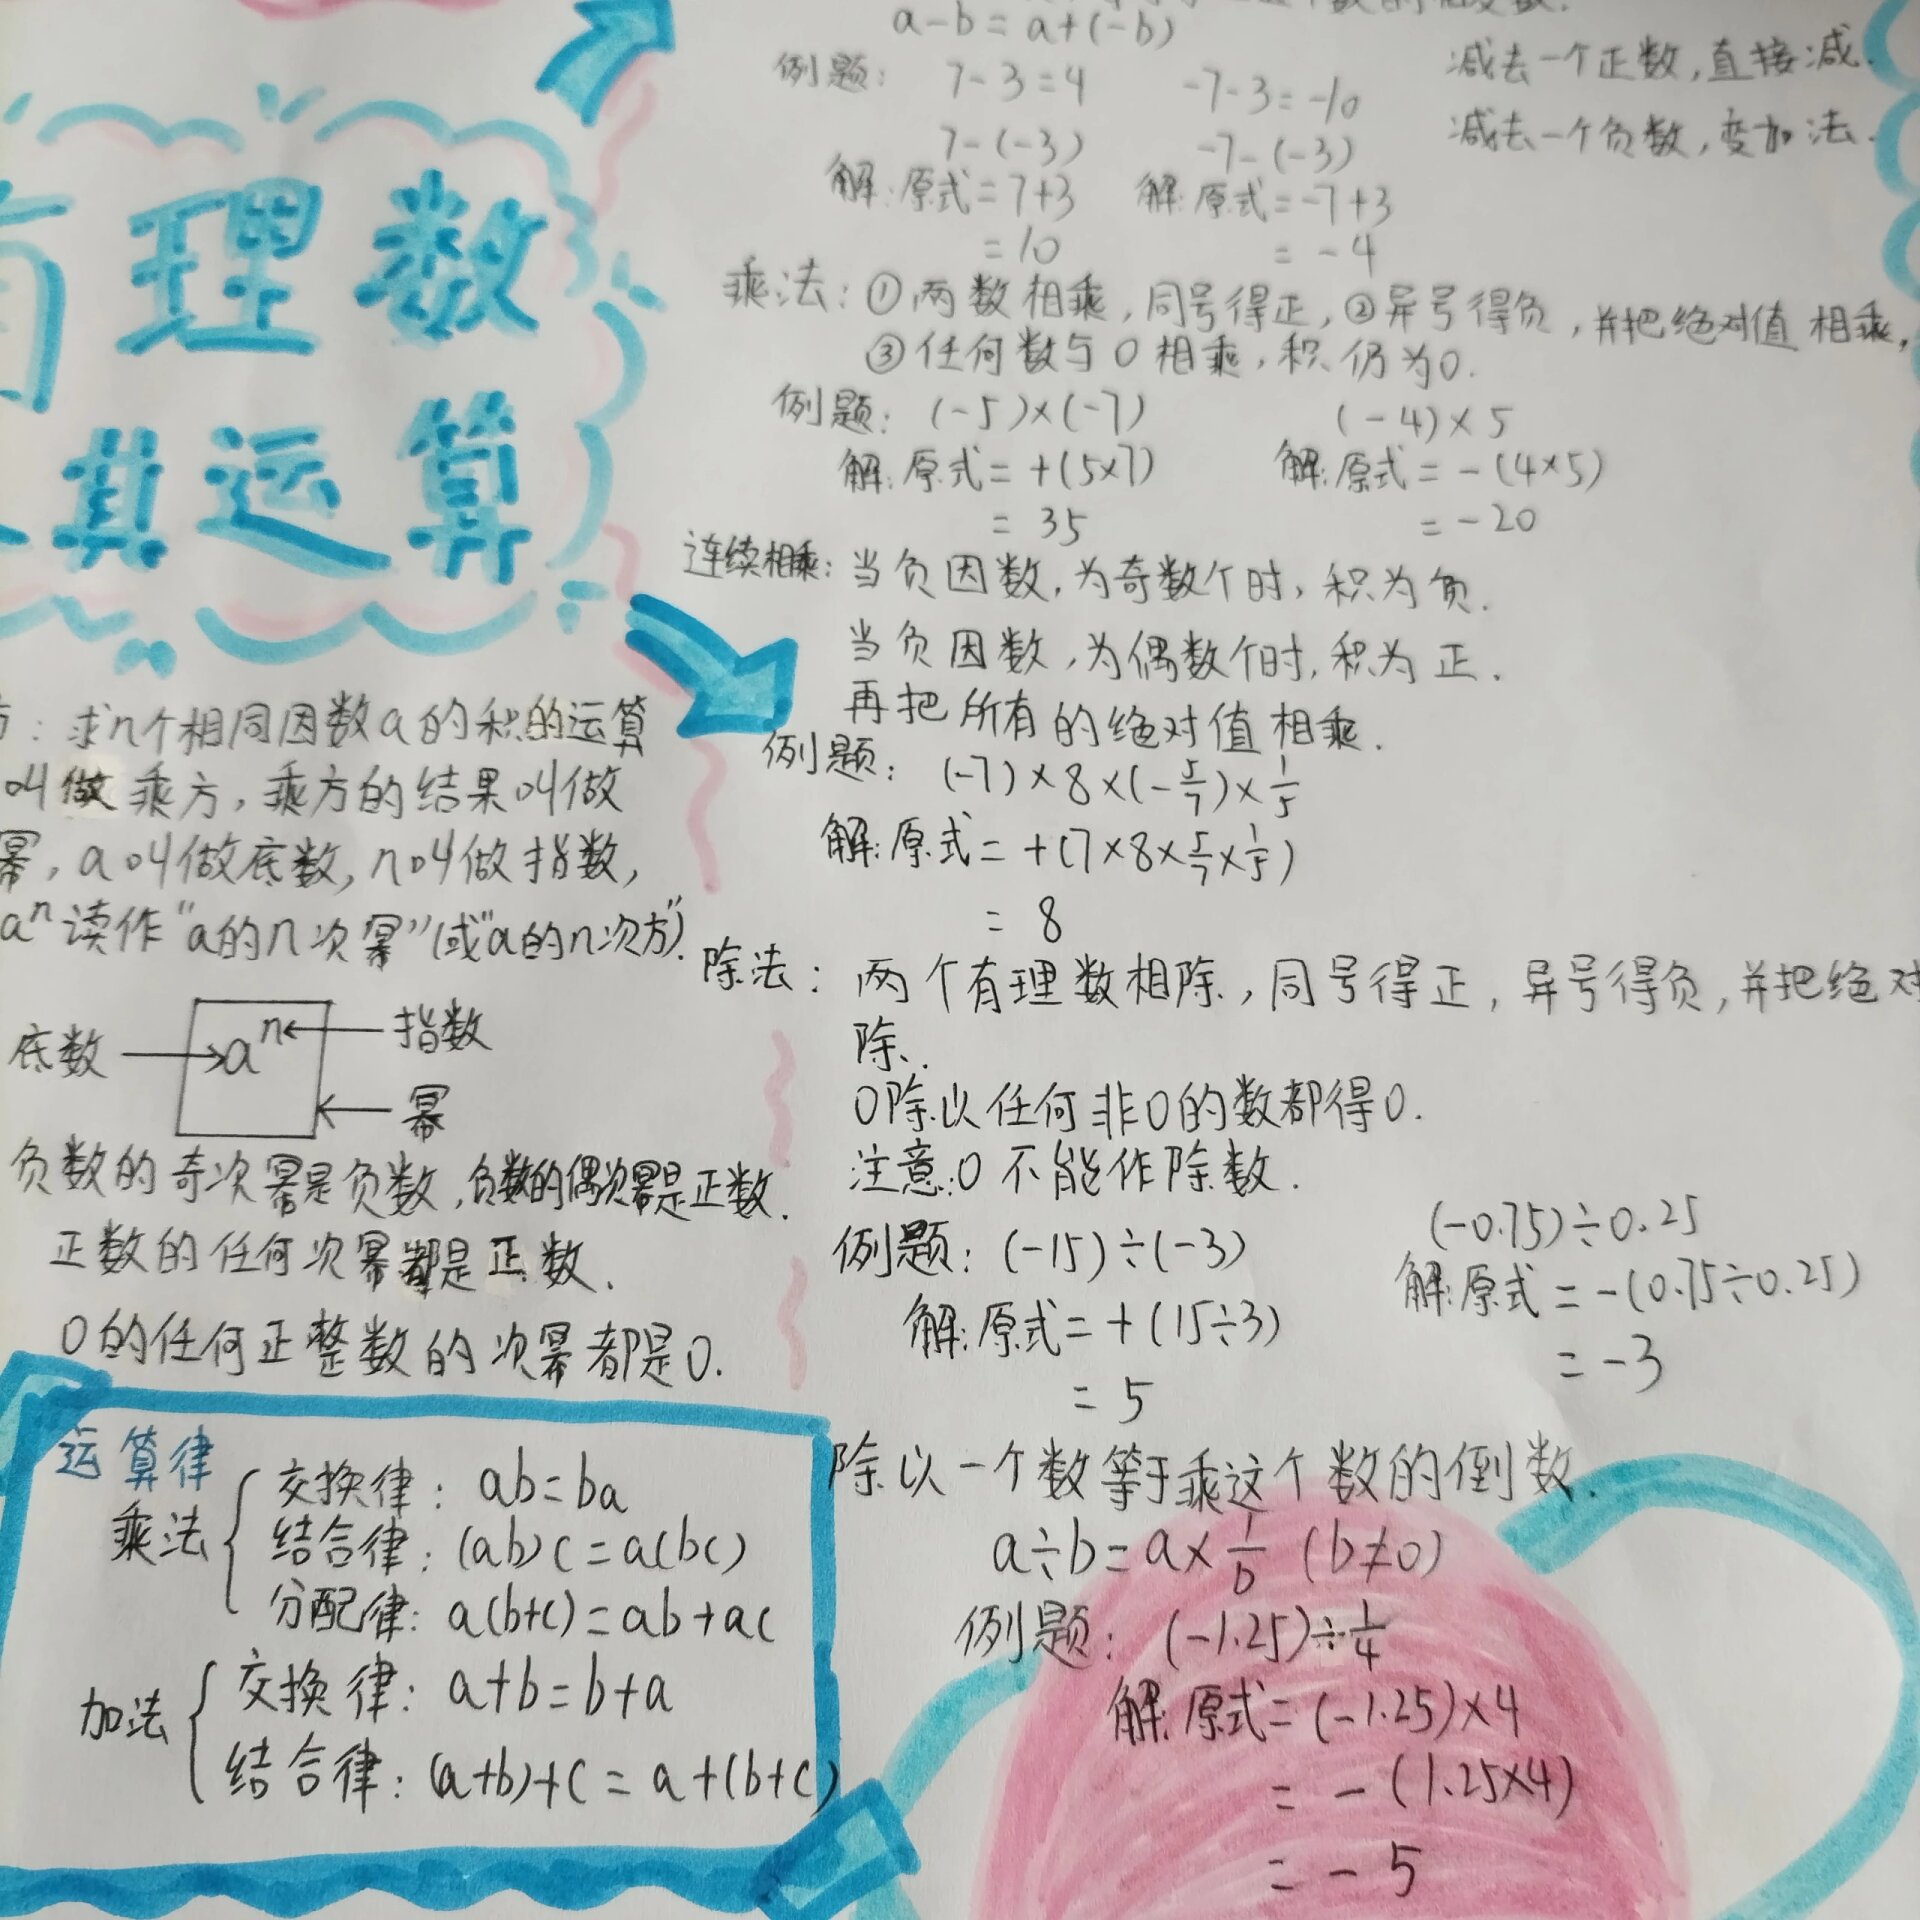 有理数
其运算
a-b=a+(-b)
例题: 7-3=4 -7-3=-10
减去一个正数,直接减.
7-(-3) -7-(-3)
减去一个负数,变加法.
解:原式=7+3 解:原式=-7+3
=10 =-4
乘法:①两数相乘,同号得正,②异号得负,并把绝对值相乘,
③任何数与0相乘,积仍为0.
例题: (-5)×(-7) (-4)×5
解:原式=+(5×7) 解:原式=-(4×5)
=35 =-20
连续相乘:当负因数,为奇数个时,积为负.
当负因数,为偶数个时,积为正.
再把所有的绝对值相乘.
例题: (-7)×8×(-5/7)×1/5
解:原式=+(7×8×5/7×1/5)
=8
除法:两个有理数相除,同号得正,异号得负,并把绝对
除.
0除以任何非0的数都得0.
注意:0不能作除数.
例题: (-15)÷(-3) (-0.75)÷0.25
解:原式=+(15÷3) 解:原式=-(0.75÷0.25)
=5 =-3
除以一个数等于乘这个数的倒数.
a÷b=a×1/b (b≠0)
例题: (-1.25)÷1/4
解:原式=(-1.25)×4
=-(1.25×4)
=-5
方:求n个相同因数a的积的运算
叫做乘方,乘方的结果叫做
幂,a叫做底数,n叫做指数,
aⁿ读作"a的n次幂"(或"a的n次方").
底数 aⁿ 指数
幂
负数的奇次幂是负数,负数的偶次幂是正数.
正数的任何次幂都是正数.
0的任何正整数的次幂都是0.
运算律
乘法
交换律: ab=ba
结合律: (ab)c=a(bc)
分配律: a(b+c)=ab+ac
加法
交换律: a+b=b+a
结合律: (a+b)+c=a+(b+c)